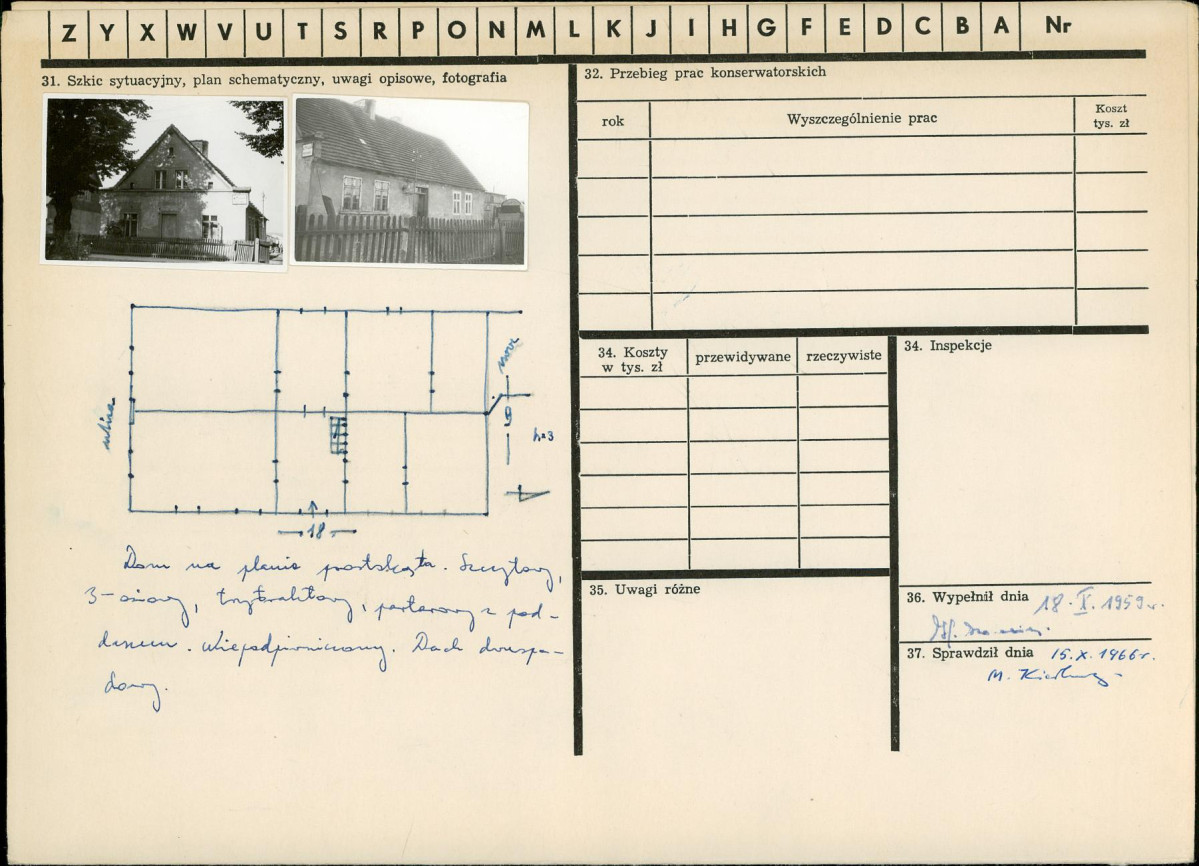 Z Y X W V U T S R P O N M L K J I H G F E D C B A Nr
31. Szkic sytuacyjny, plan schematyczny, uwagi opisowe, fotografia
ulica
18
h=3
Dom na planie prostokąta. Szczytowy,
3-osiowy, trzytraktowy, parterowy z pod-
daszem. Niepodpiwniczony. Dach dwuspa-
dowy.
32. Przebieg prac konserwatorskich
rok
Wyszczególnienie prac
Koszt
tys. zł
34. Koszty
w tys. zł
przewidywane
rzeczywiste
34. Inspekcje
35. Uwagi różne
36. Wypełnił dnia 18.X.1959 r.
37. Sprawdził dnia 15.X.1966 r.
M.